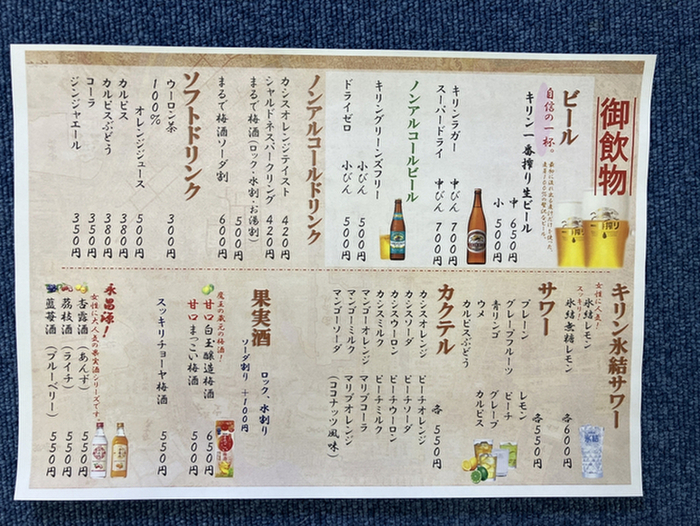 御飲物
ビール
自信の一杯。
キリン一番搾り生ビール
中 650円
小 500円
キリンラガー 中びん 700円
スーパードライ 中びん 700円
ノンアルコールビール
キリングリーンズフリー 小びん 500円
ドライゼロ 小びん 500円
ノンアルコールドリンク
カシスオレンジテイスト 420円
シャルドネスパークリング 420円
まるで梅酒(ロック・水割・お湯割) 500円
まるで梅酒ソーダ割 600円
ソフトドリンク
ウーロン茶 300円
100%オレンジジュース 500円
カルピス 380円
カルピスぶどう 380円
コーラ 350円
ジンジャエール 350円
キリン氷結サワー
女性に人気!
スッキリ
氷結レモン
氷結無糖レモン
各600円
サワー
プレーン レモン
グレープフルーツ ピーチ
青リンゴ グレープ
ウメ カルピス
カルピスぶどう
各550円
カクテル
カシスオレンジ ピーチオレンジ
カシスソーダ ピーチソーダ
カシスウーロン ピーチウーロン
カシスミルク ピーチミルク
マンゴーオレンジ マリブコーラ
マンゴーミルク マリブオレンジ
マンゴーソーダ (ココナッツ風味)
各550円
果実酒
ロック、水割り
ソーダ割り +100円
魔王の蔵元の梅酒!
甘口 白玉醸造梅酒 650円
甘口 まっこい梅酒 500円
スッキリ チョーヤ梅酒 550円
永昌源!
女性に大人気の果実酒シリーズです。
杏露酒(あんず) 550円
荔枝酒(ライチ) 550円
藍苺酒(ブルーベリー) 550円